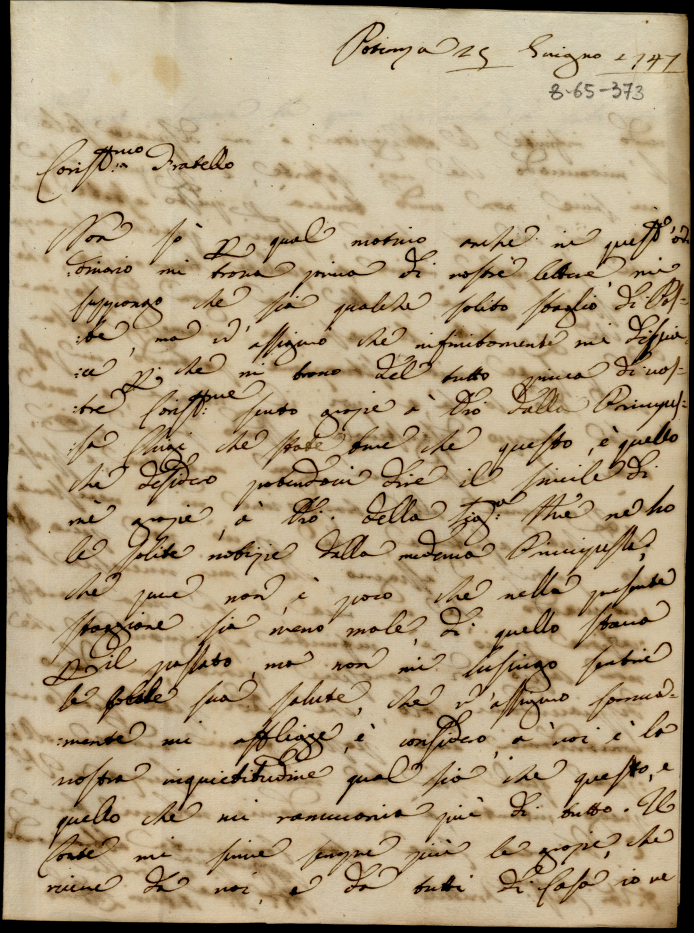 25 Giugno 1747
8-65-373
Cariss.mo Fratello
Non sò p qual motivo anche in quest'or:
:dinario mi trovo priva di vostre lettere mi
suppongo che sia qualche solito sbaglio di Pos:
:te, ma v'assicuro che infinitamente mi dispia:
:ce p che mi trovo del tutto priva di vos:
:tre Cariss.me sento grazie à Dio dalla Princips:
:sa che state bene che questo, è quello
che desidero potendovi dire il simile di
mè grazie, à Dio. della Sig.ra Mrè ne ho
le solite notizie dalla medema Principessa,
che pure non è poco che nella presente
staggione sia meno male, di quello stava
p il passato, ma non mi lusingo sentire
la solita sua salute, che v'assicuro somma:
:mente mi affligge, è considero, à voi è la
vostra inquietitudine qual sia che questo, e
quello che mi rammaria più di tutto. Il
Conte mi scrive sempre più le grazie, che
riceve da voi, e da tutti di Casa io ve